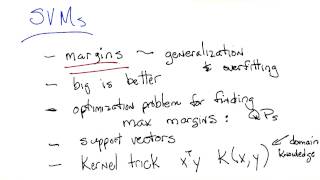 SVMs
- margins ~ generalization
& overfitting
- big is better
- optimization problem for finding
max margins: QPs
- support vectors
- Kernel trick xᵀy K(x,y) ← domain
knowledge